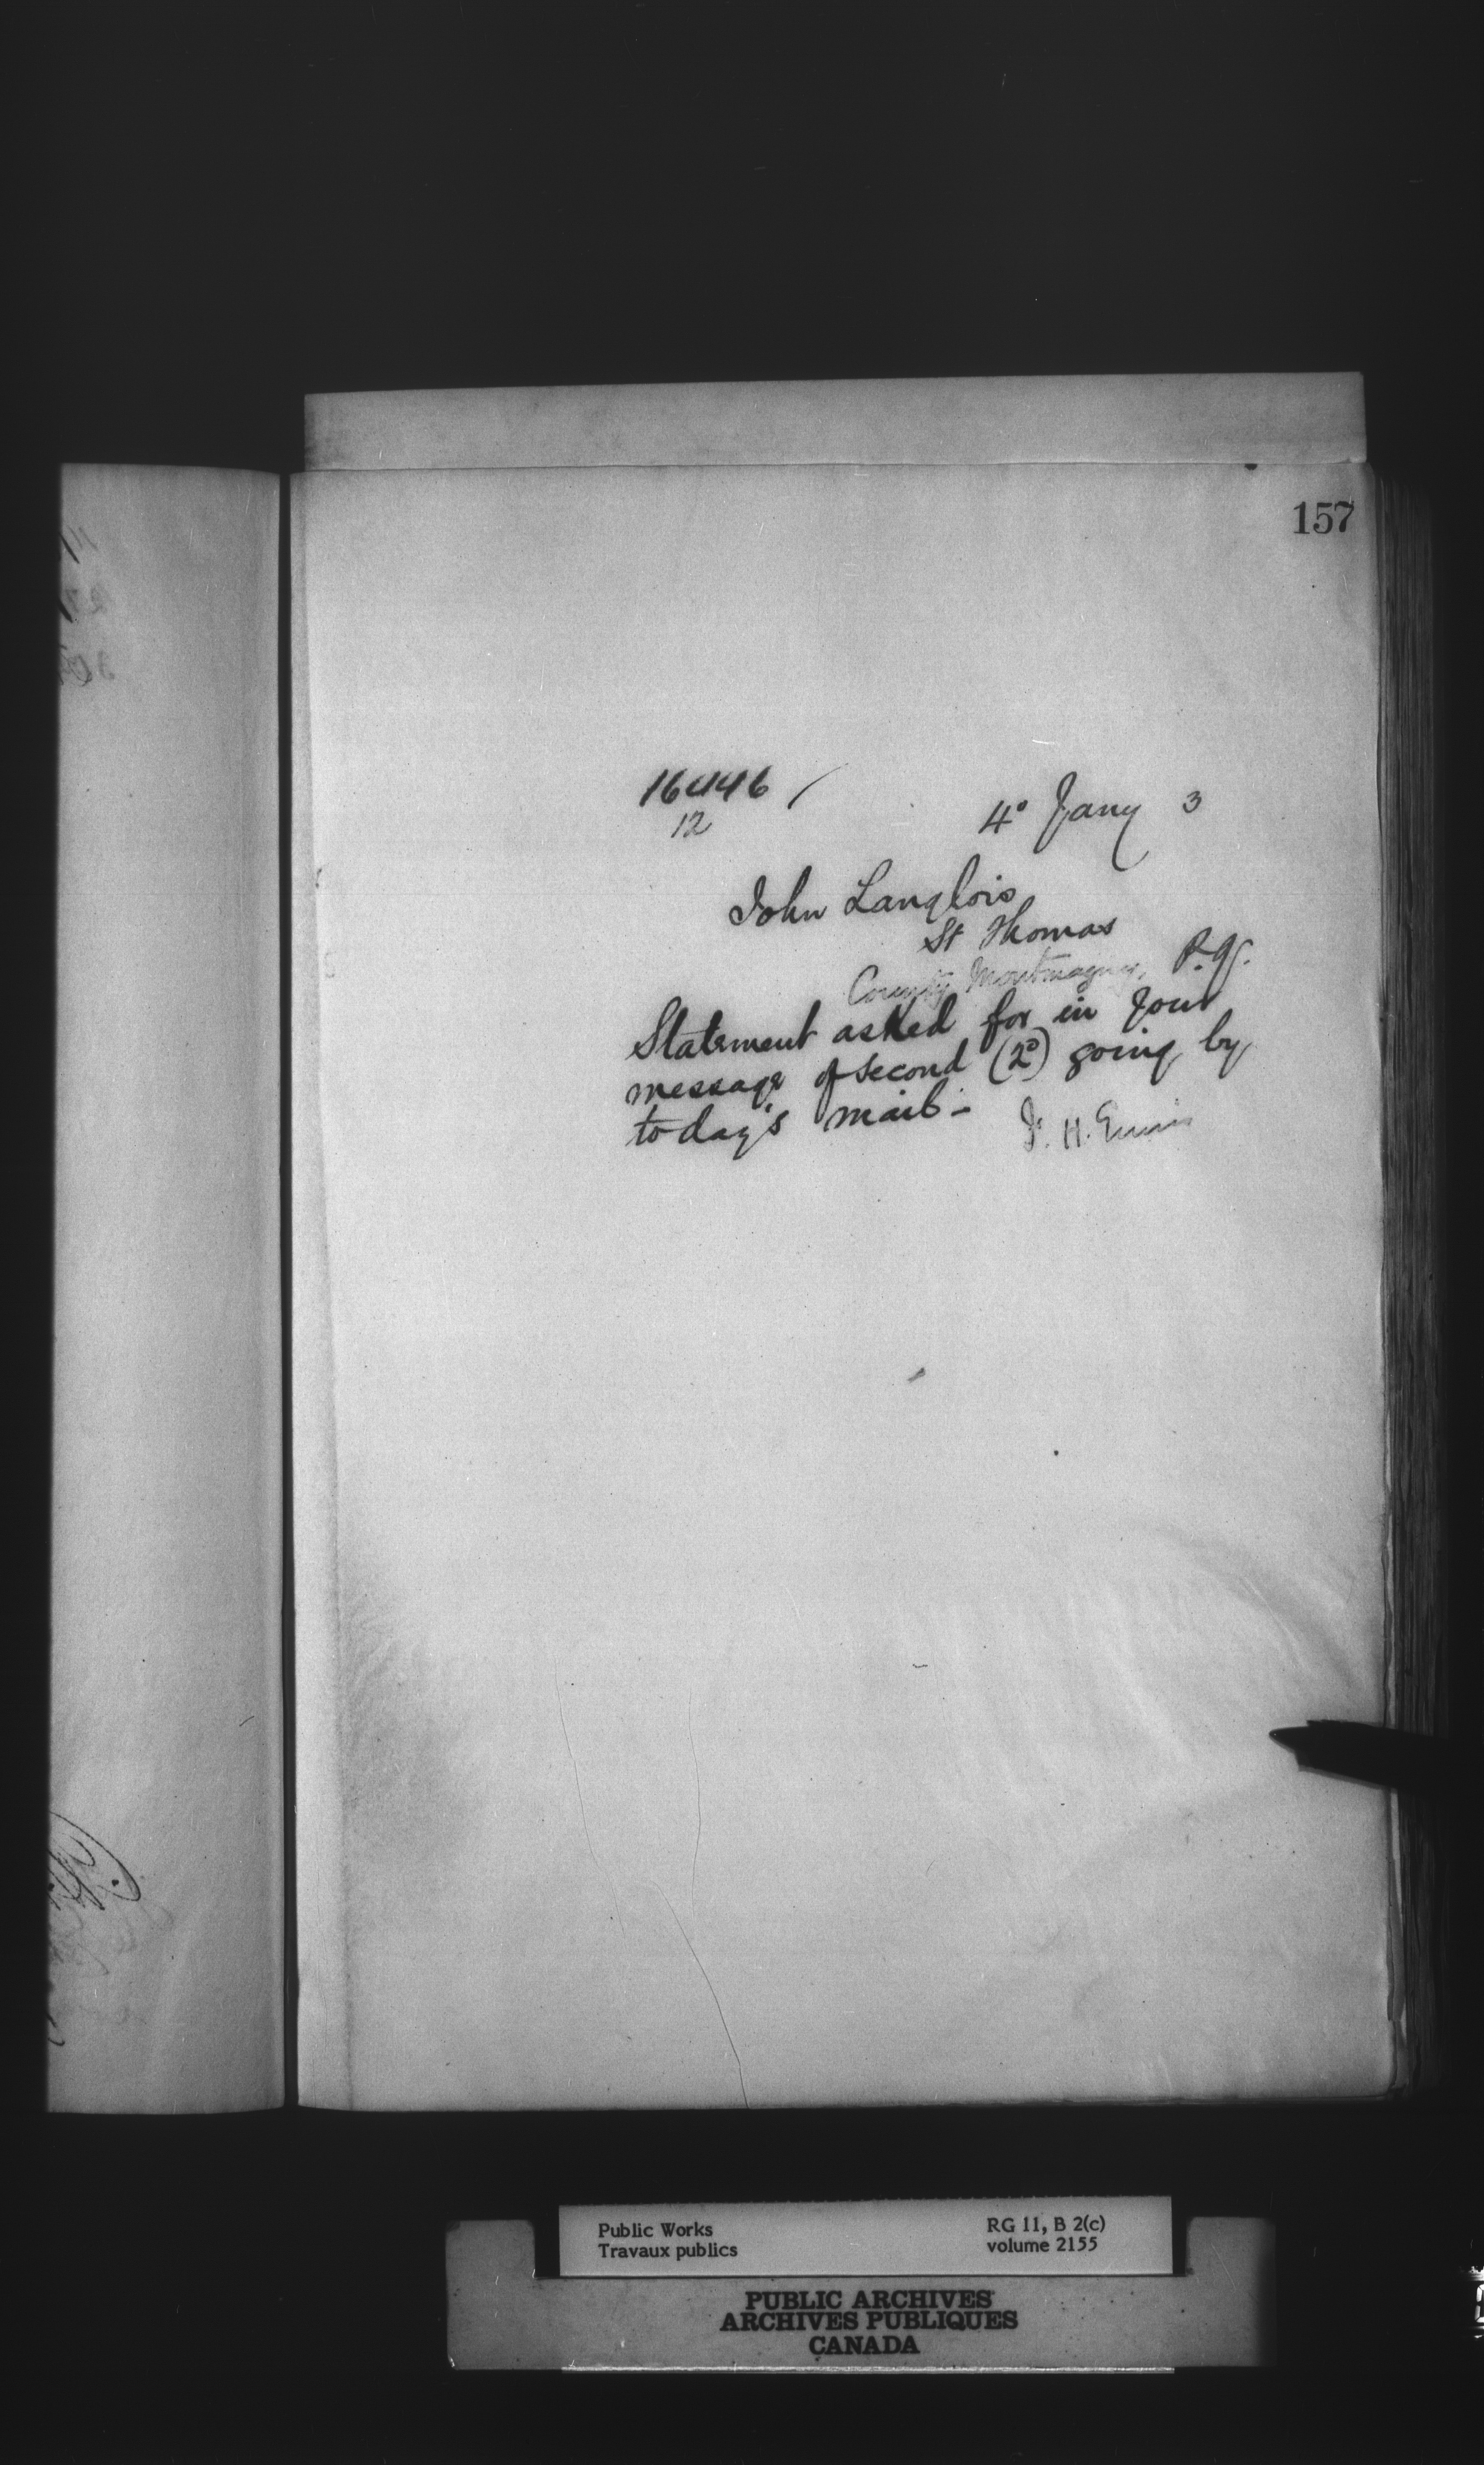 157
16446 /
12
4° Jany 3
John Langlois
St Thomas
County Montmagny, P.Q.
Statement asked for in your
message of second (2°) going by
today's mail -
F. H. Ennis
Public Works
Travaux publics
RG 11, B 2(c)
volume 2155
PUBLIC ARCHIVES
ARCHIVES PUBLIQUES
CANADA